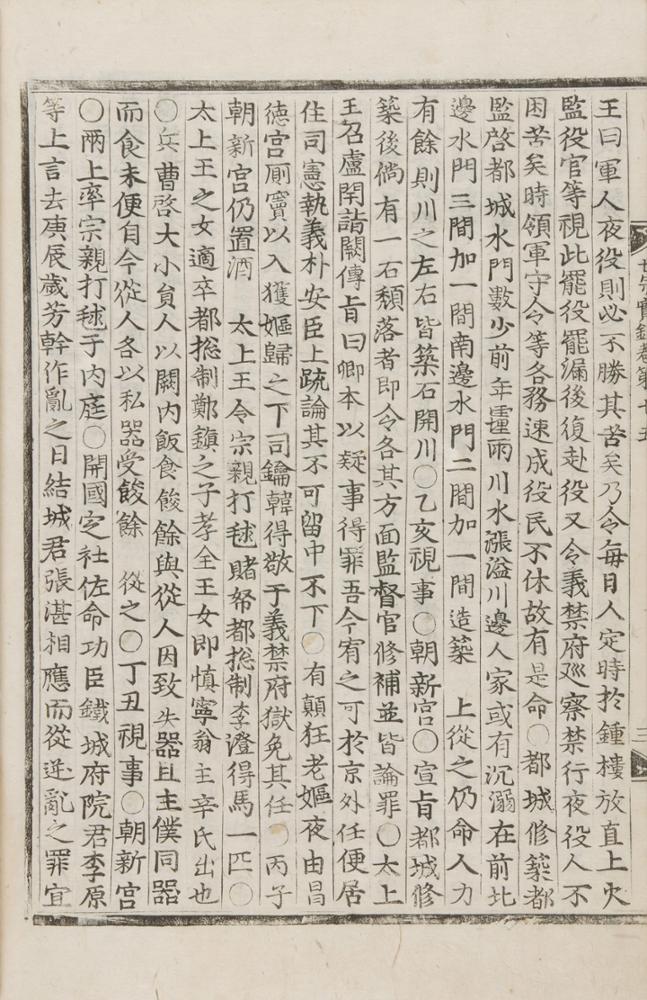 世宗實錄卷第十五
三
王曰軍人夜役則必不勝其苦矣乃令每日人定時於鍾樓放直上火
監役官等視此罷役罷漏後復赴役又令義禁府巡察禁行夜役人不
困苦矣時領軍守令等各務速成役民不休故有是命○都城修築都
監啓都城水門數少前年霾雨川水漲溢川邊人家或有沉溺在前北
邊水門三間加一間南邊水門二間加一間造築 上從之仍命人力
有餘則川之左右皆築石開川○乙亥視事○朝新宮○宣旨都城修
築後倘有一石頹落者即令各其方面監督官修補並皆論罪○太上
王召盧閈詣闕傳旨曰卿本以疑事得罪吾今宥之可於京外任便居
住司憲執義朴安臣上䟽論其不可留中不下○有顚狂老嫗夜由昌
德宮厠竇以入獲嫗歸之下司鑰韓得敬于義禁府獄免其任○丙子
朝新宮仍置酒 太上王令宗親打毬賭帑都摠制李澄得馬一匹○
太上王之女適卒都摠制鄭鎭之子孝全王女即愼寧翁主辛氏出也
○兵曹啓大小員人以闕內飯食餕餘與從人因致失器且主僕同器
而食未便自今從人各以私器受餕餘 從之○丁丑視事○朝新宮
○兩上率宗親打毬于內庭○開國定社佐命功臣鐵城府院君李原
等上言去庚辰歲芳幹作亂之日結城君張湛相應而從逆亂之罪宜